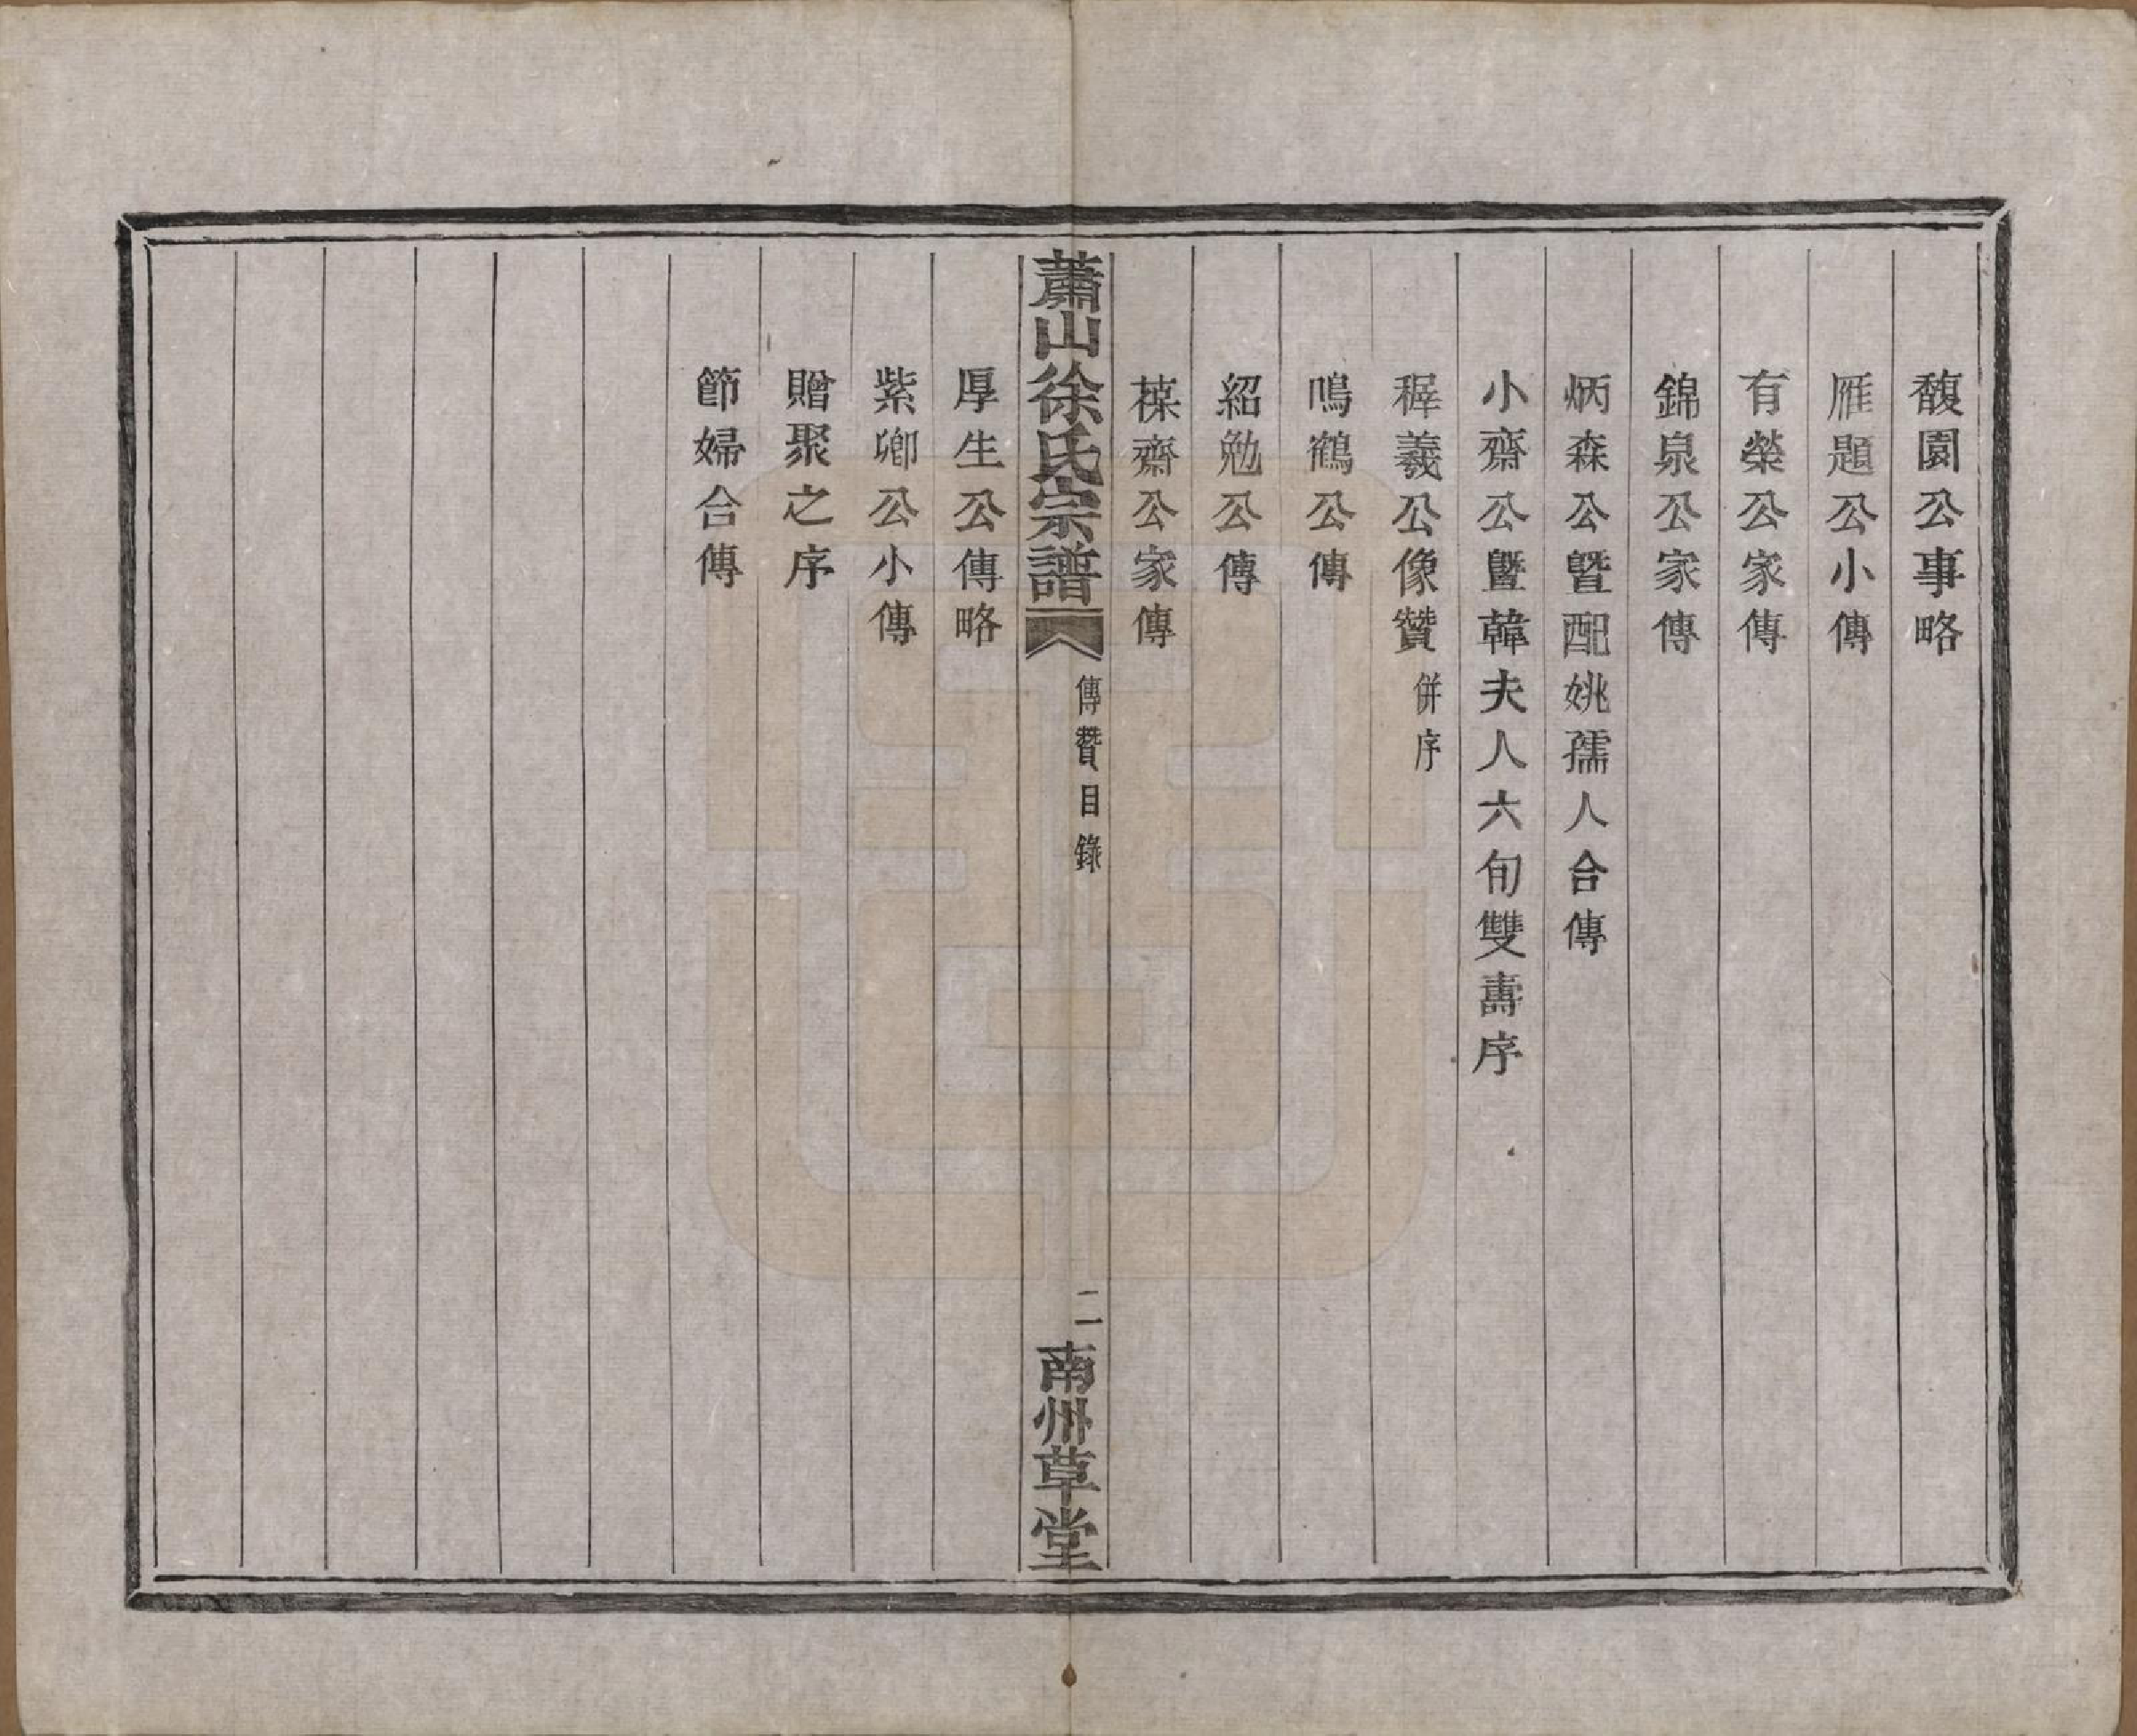 馥園公事略
雁題公小傳
有榮公家傳
錦泉公家傳
炳森公曁配姚孺人合傳
小齋公曁韓夫人六旬雙壽序
穉羲公像贊 併序
鳴鶴公傳
紹勉公傳
楳齋公家傳
蕭山徐氏宗譜 傳贊目錄 二 南州草堂
厚生公傳略
紫卿公小傳
贈聚之序
節婦合傳